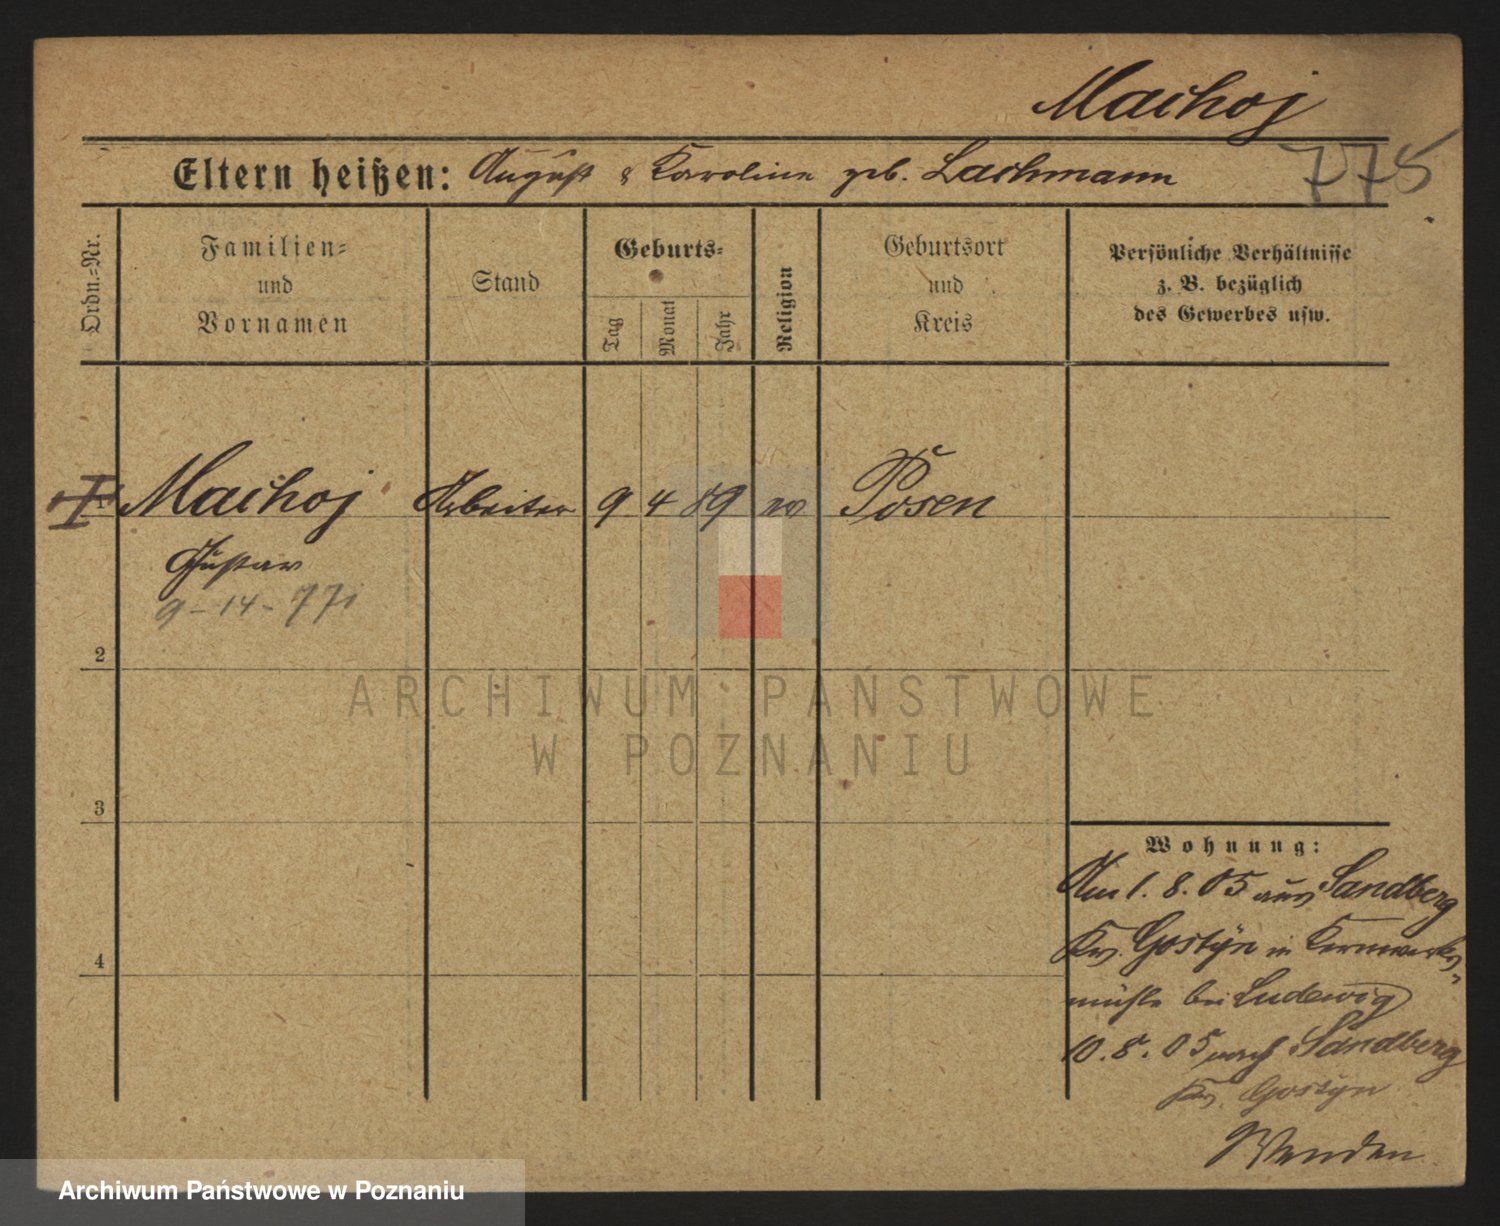 Machoj
Eltern heißen: August & Karoline geb. Lachmann
775
Ordn.=Nr.
Familien=
und
Vornamen
Stand
Geburts=
Tag
Monat
Jahr
Religion
Geburtsort
und
Kreis
Persönliche Verhältnisse
z. B. bezüglich
des Gewerbes usw.
1 Machoj Arbeiter 9 4 89 Posen
Gustav
9-14-771
2
ARCHIWUM PAŃSTWOWE
W POZNANIU
3
Wohnung:
Am 1. 8. 05 aus Sandberg
Kr. Gostÿn in Kernwerks
4
mühle bei Ludewig
10. 8. 05 nach Sandberg
Kr. Gostyn
Wenden
Archiwum Państwowe w Poznaniu